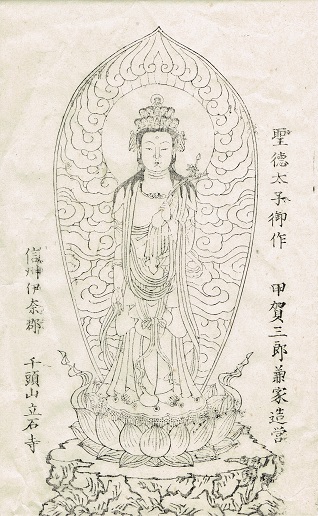 聖徳太子御作　甲賀三郎兼家造営
信州伊奈郡　千頭山立石寺